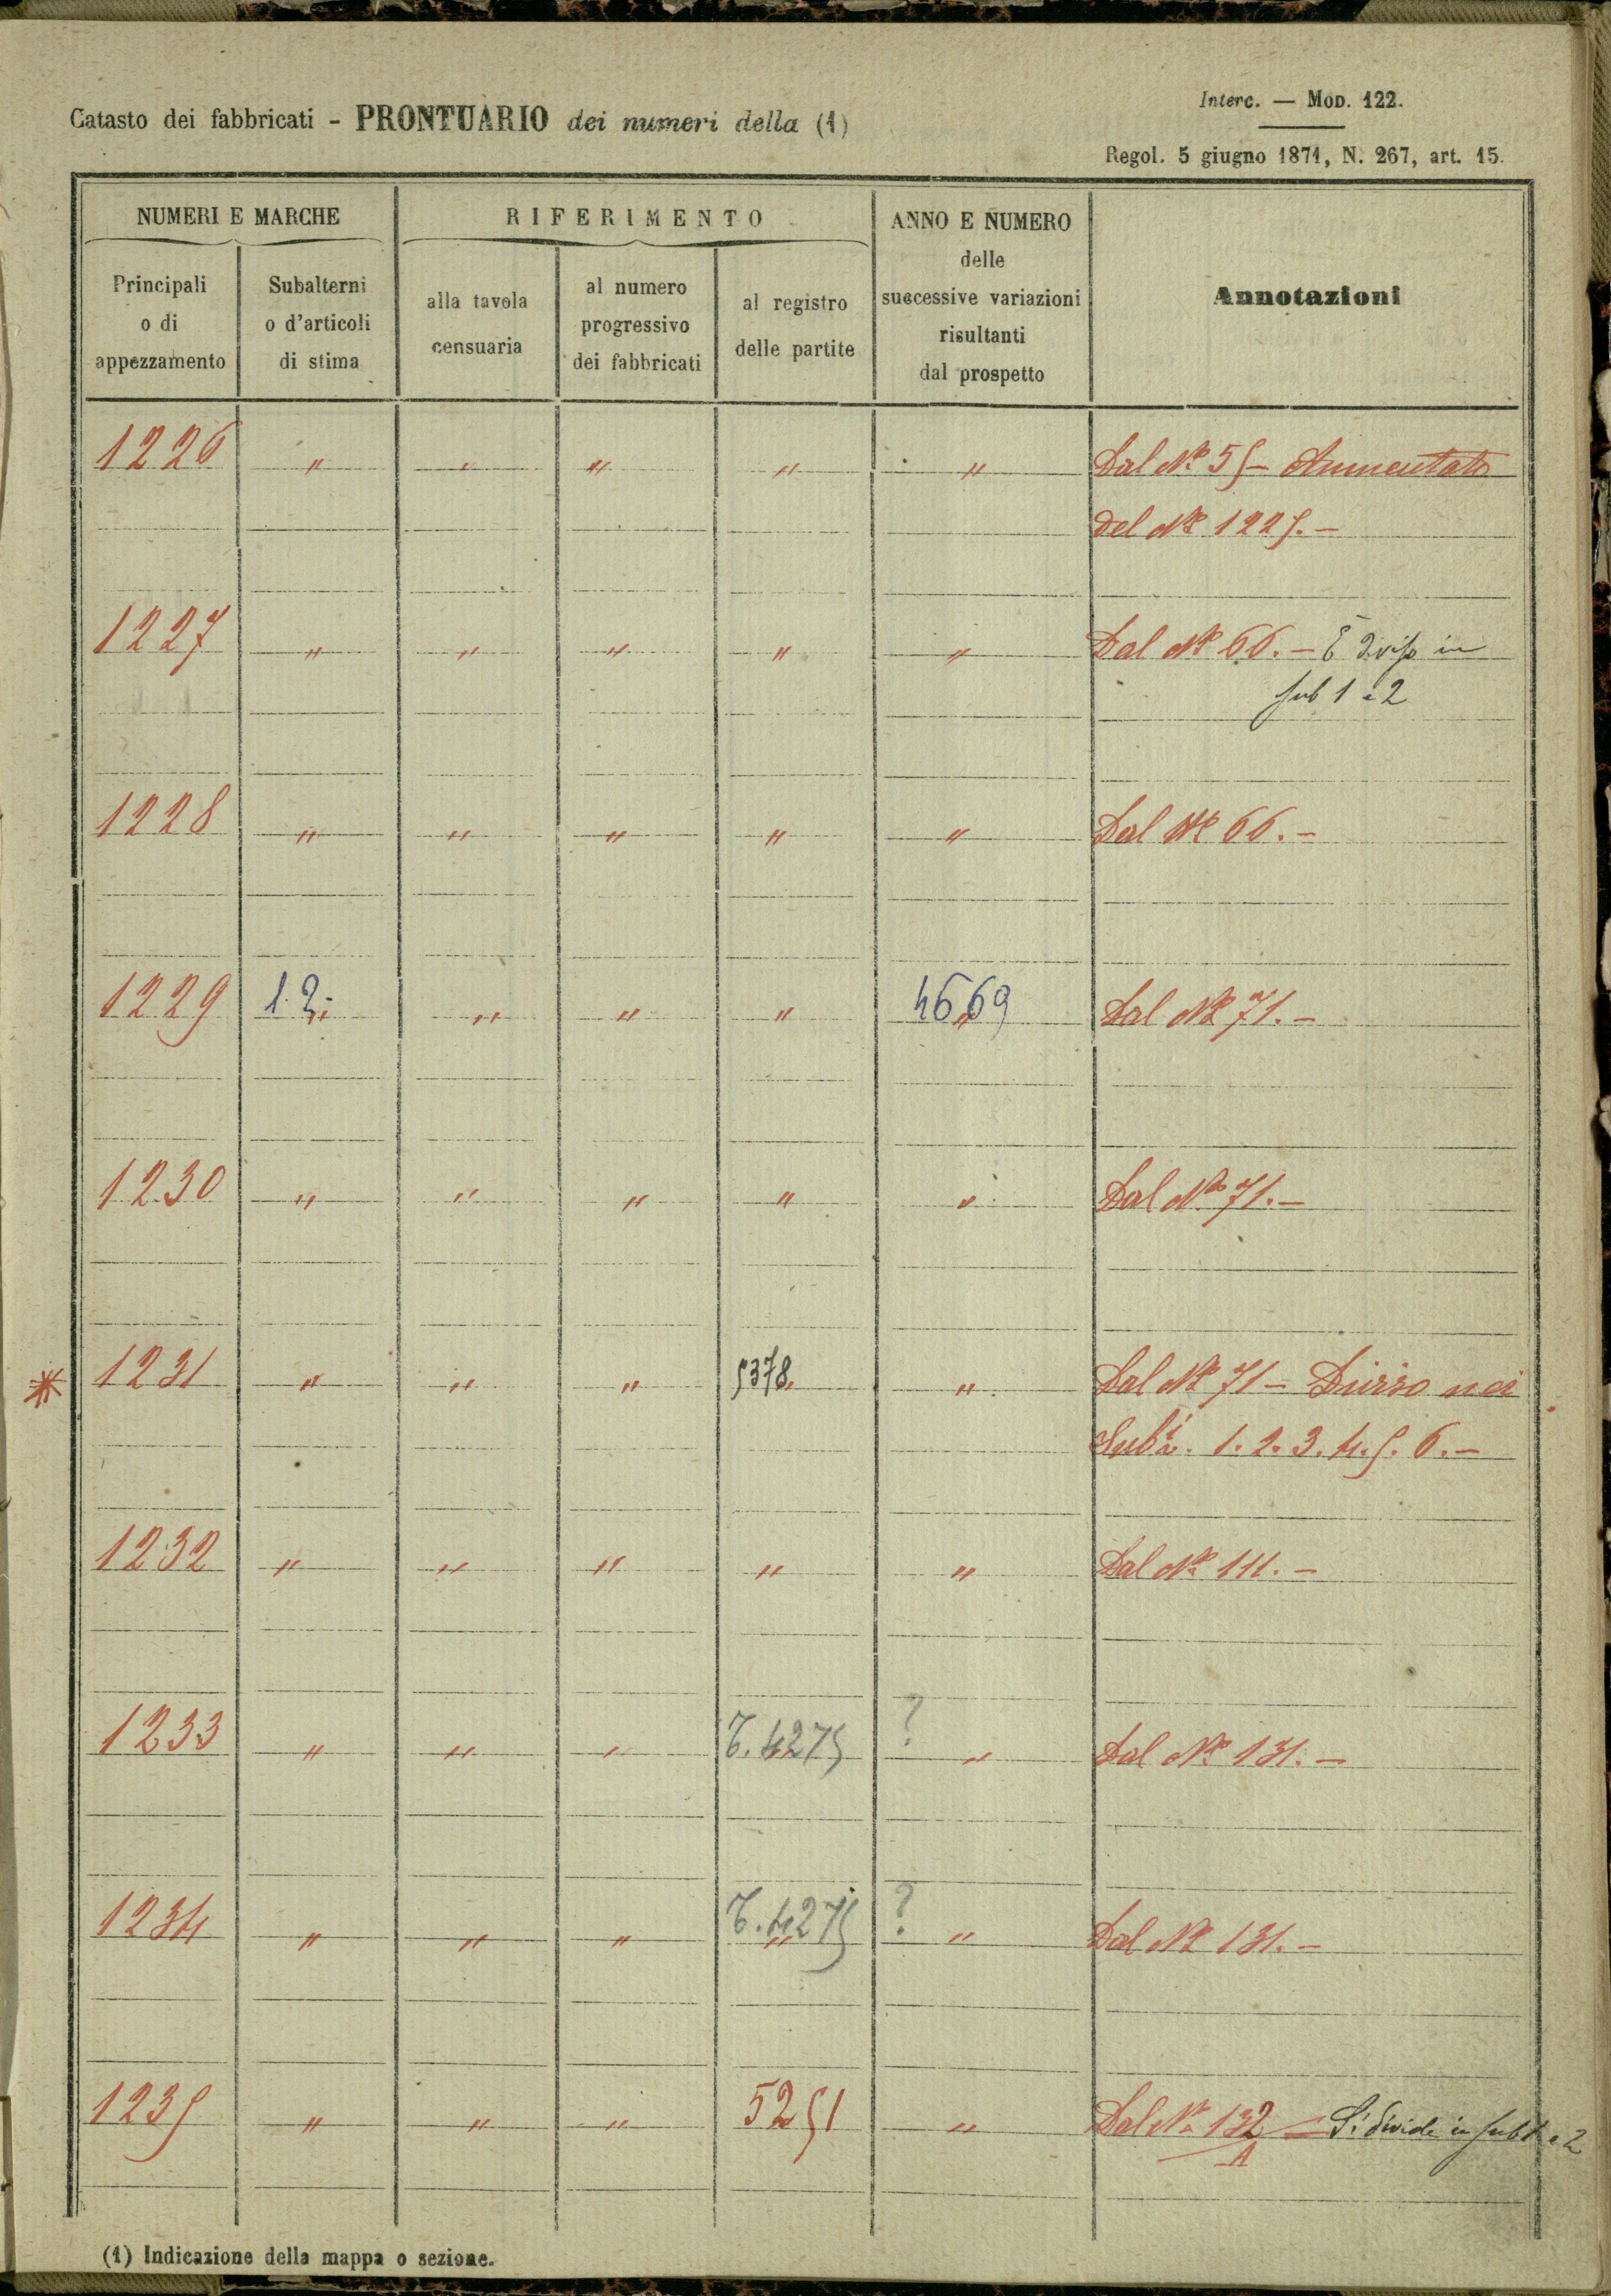 Catasto dei fabbricati - PRONTUARIO dei numeri della (1)
Interc. — MOD. 122.
Regol. 5 giugno 1871, N. 267, art. 15.
NUMERI E MARCHE
RIFERIMENTO
ANNO E NUMERO
delle
successive variazioni
risultanti
dal prospetto
Annotazioni
Principali
o di
appezzamento
Subalterni
o d'articoli
di stima
alla tavola
censuaria
al numero
progressivo
dei fabbricati
al registro
delle partite
1226 " " " " " Dal N° 55 - Aumentato
del N° 1225. -
1227 " " " " " Dal N° 66. - È diviso in
sub 1 e 2
1228 " " " " " Dal N° 66. -
1229 1.2. " " " " 4669 " Dal N° 71. -
1230 " " " " " Dal N° 71. -
* 1231 " " " 5378 " Dal N° 71 - Diviso nei
Subi. 1. 2. 3. 4. 5. 6. -
1232 " " " " " Dal N° 111. -
1233 " " " T. 4275 ? " Dal N° 131. -
1234 " " " T. 4275 ? " Dal N° 131. -
1235 " " " 5251 " Dal N° 132 = Si divide in sub 1 e 2
A
(1) Indicazione della mappa o sezione.